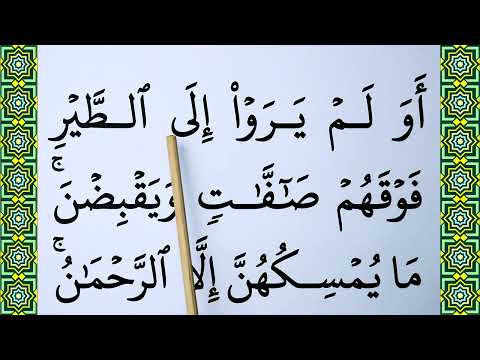 أَوَ لَمۡ يَـرَوۡاْ إِلَى ٱلـطَّيۡرِ
فَوۡقَهُمۡ صَـٰٓفَّـٰتٖ وَيَقۡبِضۡنَۚ
مَا يُمۡسِـكُهُنَّ إِلَّا ٱلرَّحۡمَـٰنُۚ